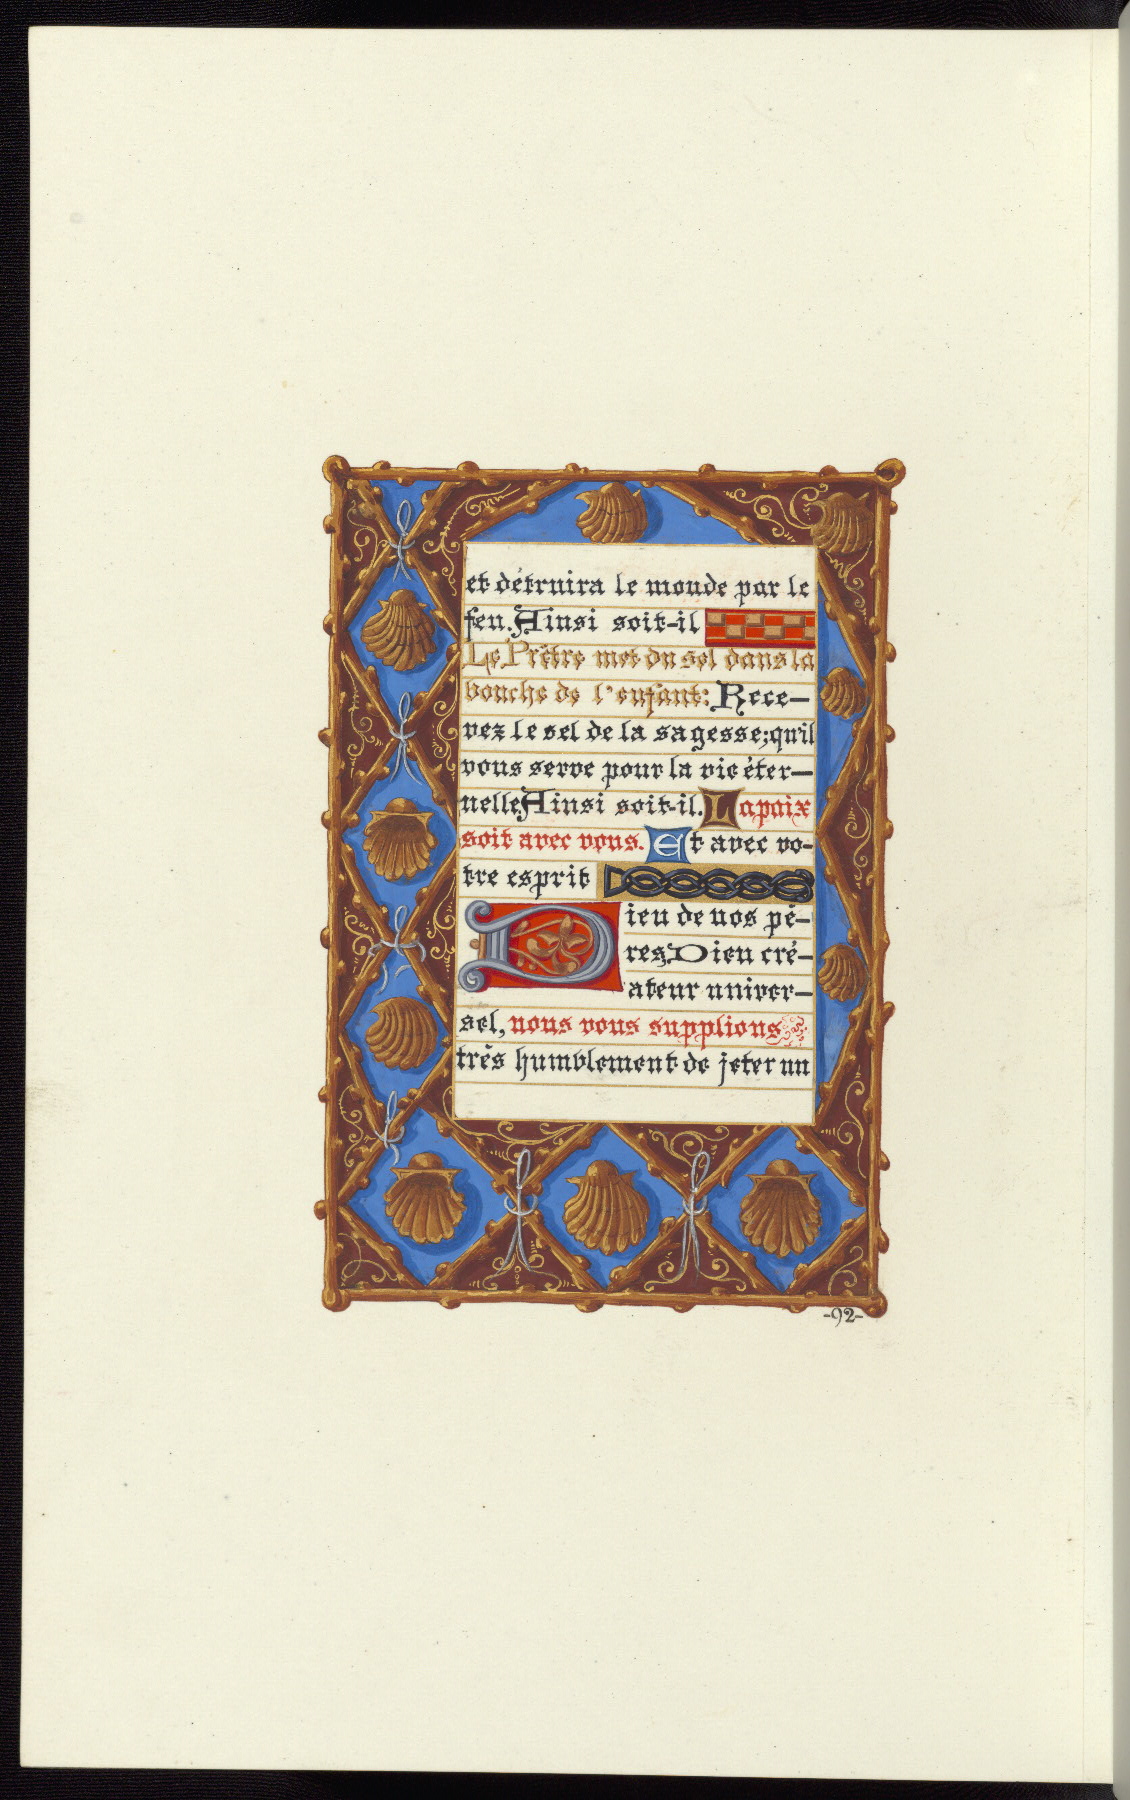 et détruira le monde par le
feu. Ainsi soit-il
Le Prêtre met du sel dans la
bouche de l'enfant: Rece-
vez le sel de la sagesse; qu'il
vous serve pour la vie éter-
nelle Ainsi soit-il. La paix
soit avec vous. Et avec vo-
tre esprit
Dieu de nos pè-
res Dieu cré-
ateur univer-
sel, nous vous supplions
très humblement de jeter un
-92-